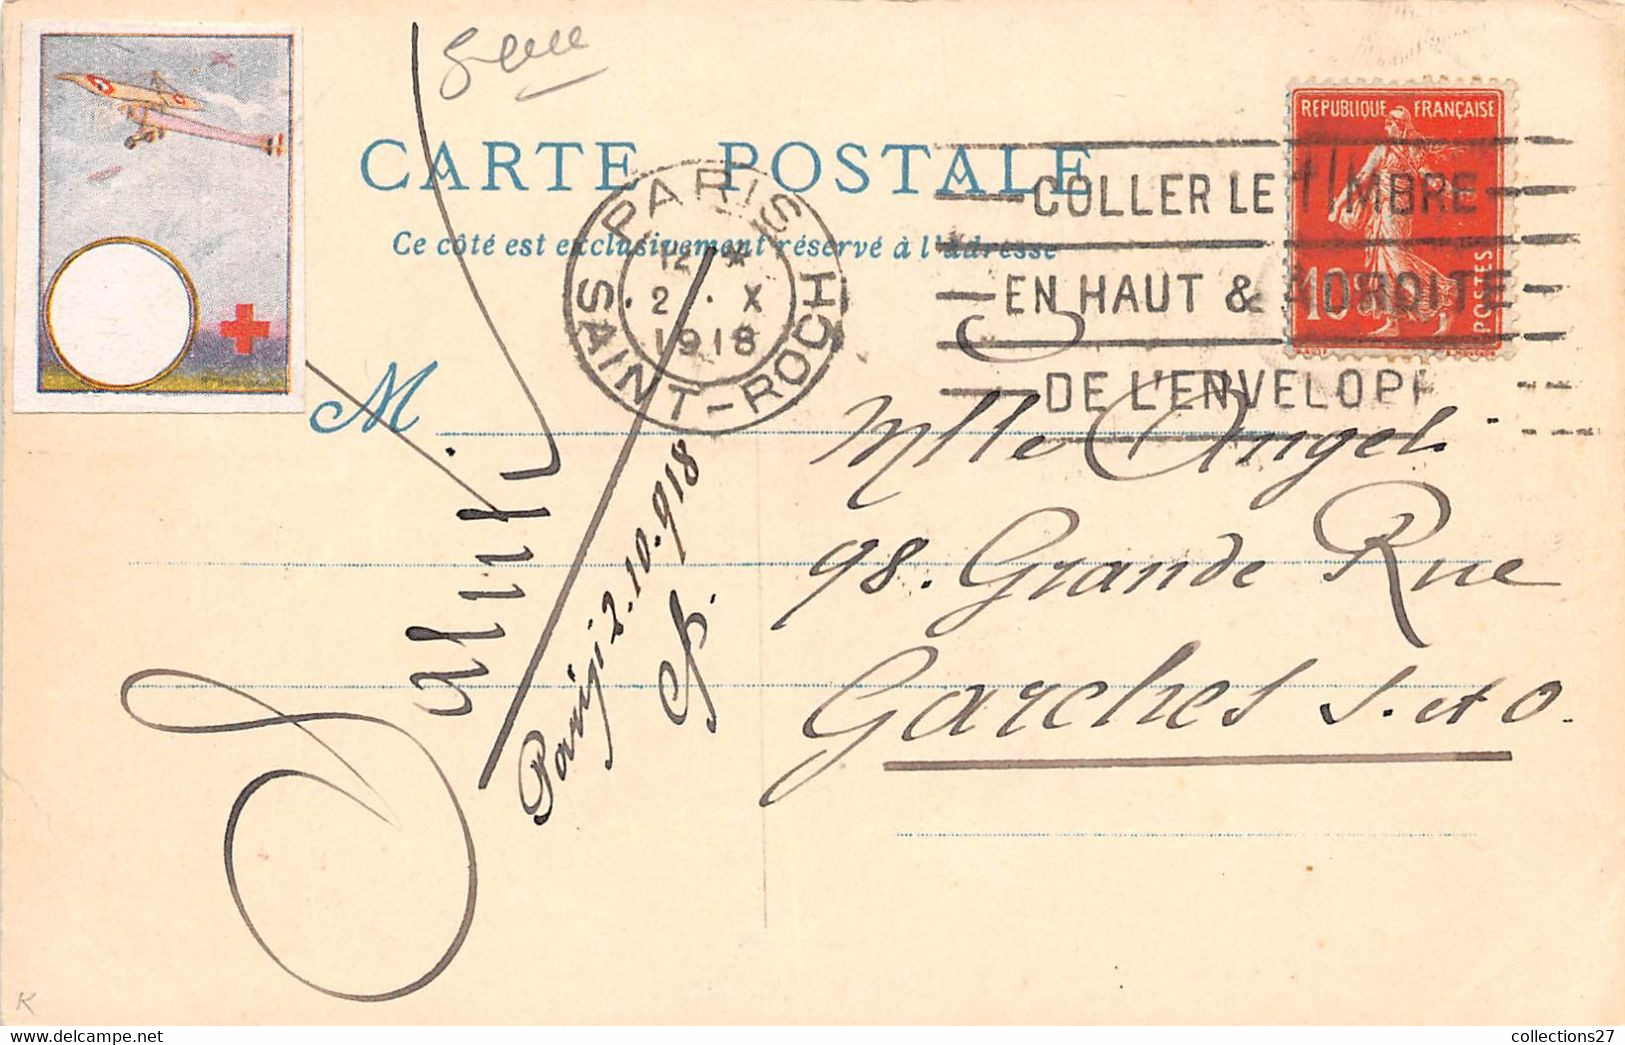 8eme
CARTE POSTALE
Ce côté est exclusivement réservé à l'adresse
PARIS
12 *
2 . X
1918
SAINT-ROCH
COLLER LE TIMBRE
EN HAUT & A DROITE
DE L'ENVELOPE
REPUBLIQUE FRANÇAISE
10c
POSTES
M
Mlle Angeli
98. Grande Rue
Garches S. et O.
Saluti
Parigi 2.10.918
K
delcampe.net
collections27